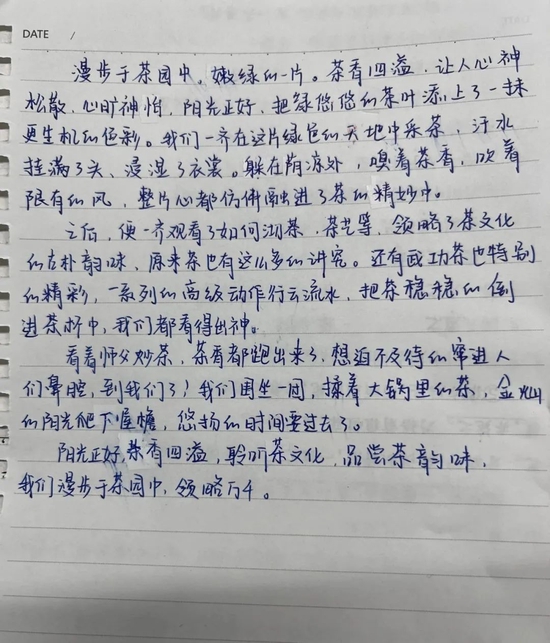 DATE /
漫步于茶园中，嫩绿的一片。茶香四溢，让人心神
松散，心旷神怡，阳光正好，把绿悠悠的茶叶添上了一抹
更生机的色彩。我们一齐在这片绿色的天地中采茶，汗水
挂满了头、浸湿了衣裳。躲在荫凉处，嗅着茶香，吹着
限有的风，整片心都仿佛融进了茶的精妙中。
之后，便一齐观看了如何沏茶，茶艺等，领略了茶文化
的古朴韵味，原来茶也有这么多的讲究。还有武功茶也特别
的精彩，一系列的高级动作行云流水，把茶稳稳的倒
进茶杯中，我们都看得出神。
看着师父炒茶，茶香都跑出来了，想迫不及待的窜进人
们鼻腔，到我们了！我们围坐一圆，揉着大锅里的茶，金灿
的阳光爬下屋檐，悠扬的时间要过去了。
阳光正好，茶香四溢，聆听茶文化，品尝茶韵味，
我们漫步于茶园中，领略万千。